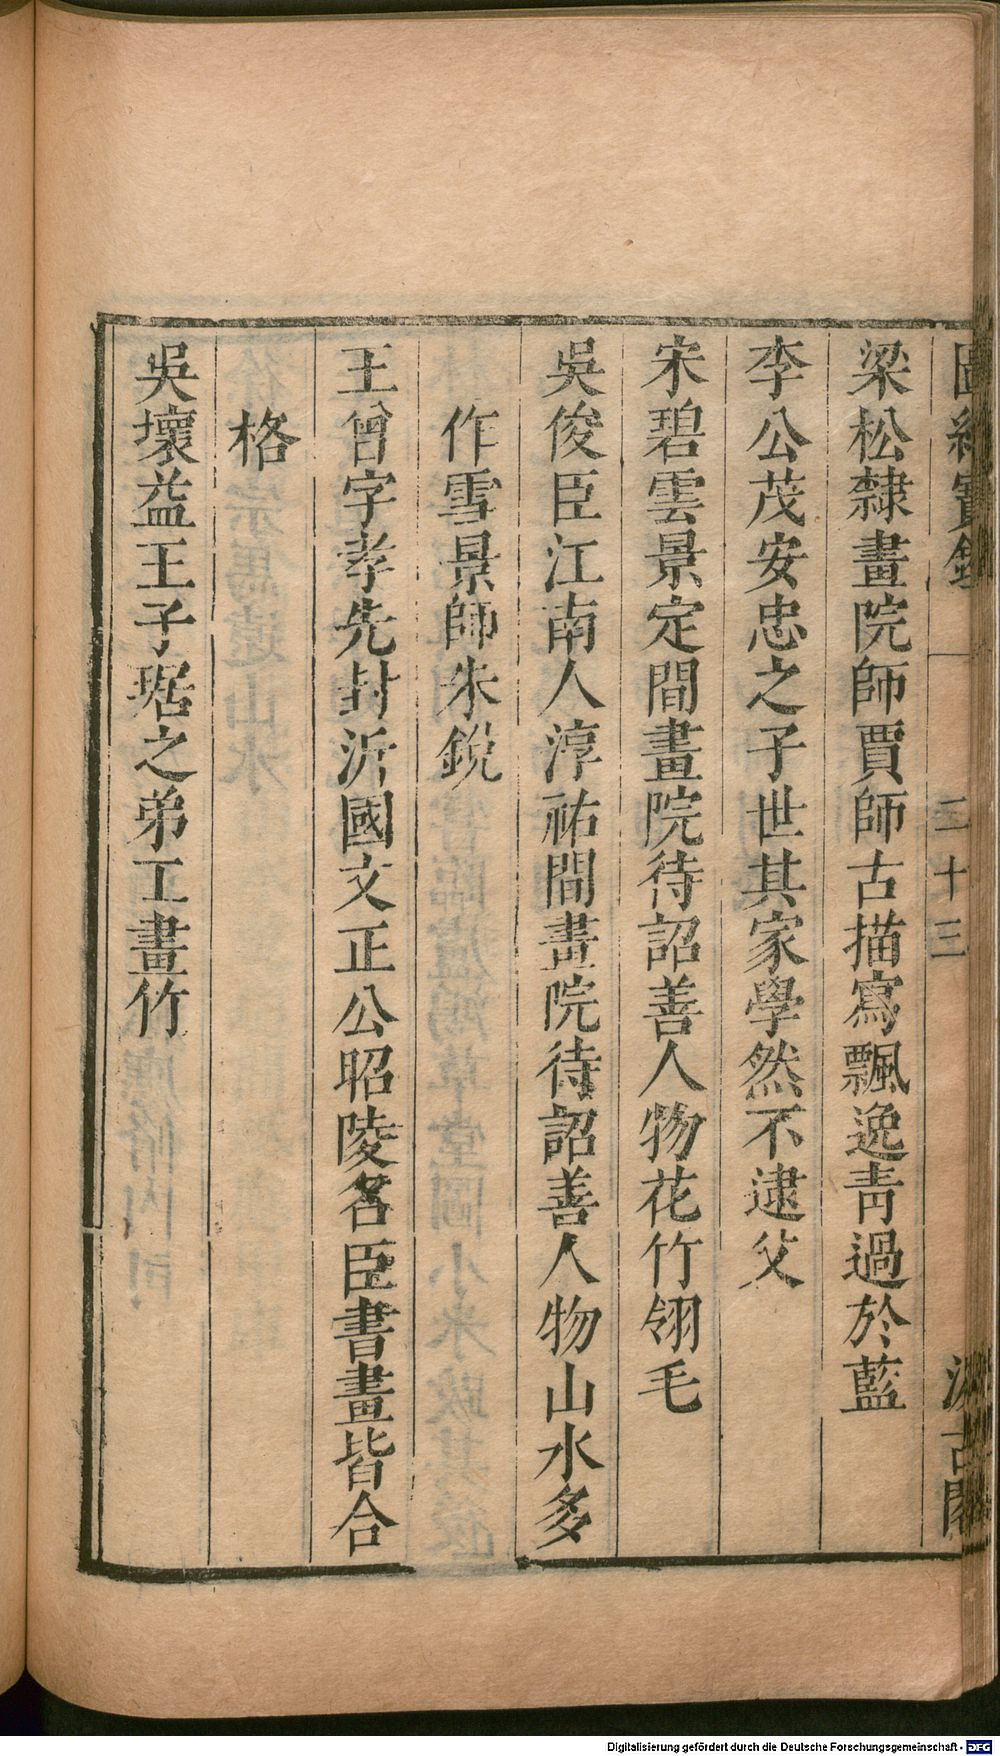 圖繪寶鑑
二十三
汲古閣
梁松隸畫院師賈師古描寫飄逸靑過於藍
李公茂安忠之子世其家學然不逮父
宋碧雲景定間畫院待詔善人物花竹翎毛
吳俊臣江南人淳祐間畫院待詔善人物山水多
作雪景師朱銳
王曾字孝先封沂國文正公昭陵名臣書畫皆合
格
吳壞益王子琚之弟工畫竹
Digitalisierung gefördert durch die Deutsche Forschungsgemeinschaft - DFG